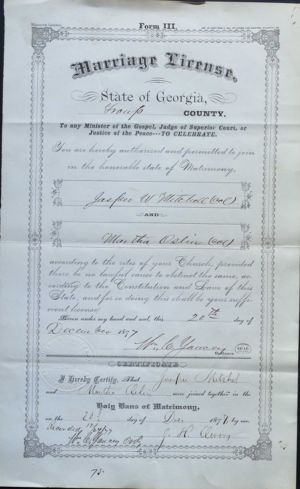 Form III.
Marriage License,
State of Georgia,
Troup COUNTY.
To any Minister of the Gospel, Judge of Superior Court, or
Justice of the Peace---TO CELEBRATE.
You are hereby authorized and permitted to join
in the honorable state of Matrimony,
Jasper W Mitchell (col)
AND
Martha Oslin (col)
according to the rites of your Church, provided
there be no lawful cause to obstruct the same, ac-
cording to the Constitution and Laws of this
State, and for so doing this shall be your suffi-
cient license
Given under my hand and seal, this 20th day of
December 1897
Wm. C. Yancey
Ordinary
CERTIFICATE
I Hereby Certify, That Jasper Mitchel
and Martha Oslin were joined together in the
Holy Bans of Matrimony,
on the day of Dec 1897 by
Recorded
Wm. C. Yancey Ord J. H.